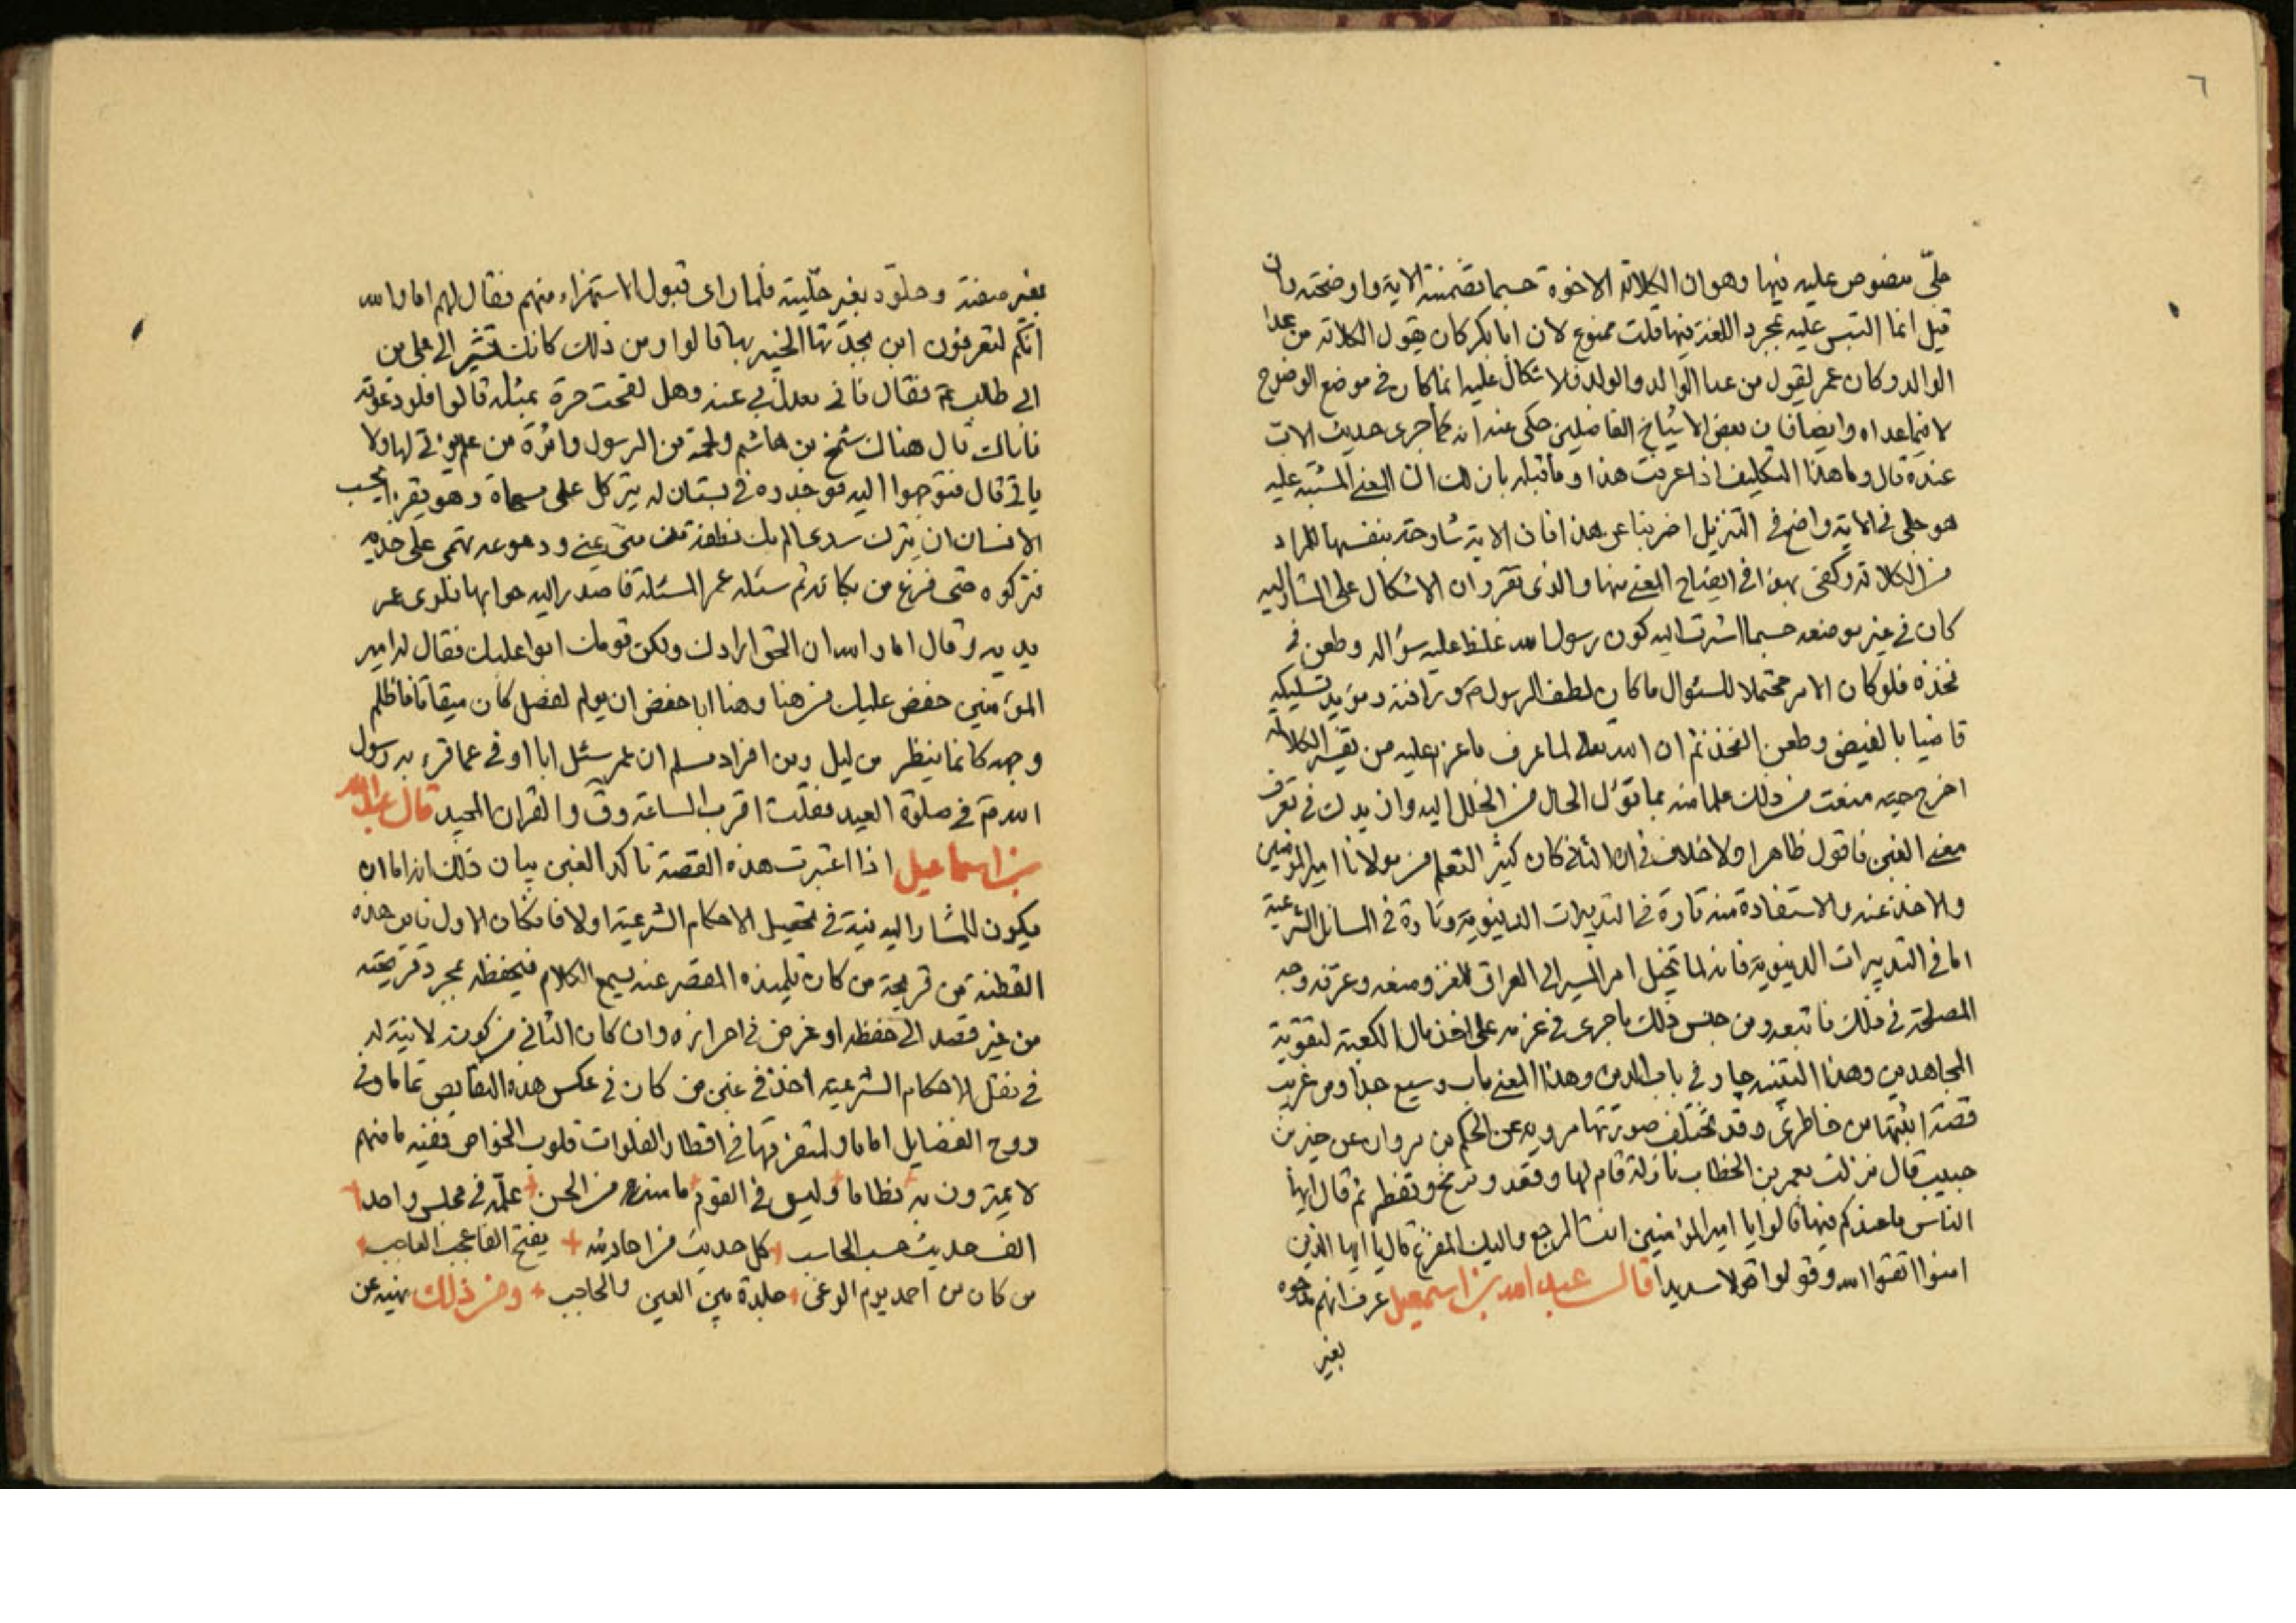 ٦
جليّ منصوص عليه فيها وهو ان الكلالة الاخوة حسبما تضمنته الاية واوضحته فان
قيل انما التبس عليه بمجرد اللغة فيها قلت ممنوع لان ابا بكر كان يقول الكلالة من عدا
الوالد وكان عمر يقول من عدا الوالد والولد فلا اشكال عليه انما كان في موضع الوضوح
لا فيما عداه وايضا فان بعض الاشياخ الفاضلين حكى عنه انه لما جرى حديث الاب
عنده قال وما هذا التكليف اذا عرفت هذا وما قبله بان لك ان المعنى المشتبه عليه
هو جلى في الاية واضح في التنزيل اضربنا عن هذا فان الاية شارحة بنفسها للمراد
من الكلالة وكفى بهذا في ايضاح المعنى منها والذى تقرر ان الاشكال على المشار اليه
كان في غير موضعه حسبما اشرت اليه كون رسول الله غلظ عليه سؤاله وطعن في
فخذه فلو كان الامر محتملا للسئوال ما كان لطف الرسول ص ورافته ومؤيد تسليكه
قاضيا بالغيض وطعن الفخذ ثم ان الله تعالى لما عرف ما عزم عليه من تفسير الكلالة
اخرج حيه منعت من ذلك علما منه بما تؤل الحال من الخلل اليه وان بدك في تعرف
معنى الغبن فاقول ظاهرا ولا خلاف في ان الثاني كان كثير التعلم من مولانا امير المؤمنين
والاخذ عنه والاستفادة منه تارة في التدبيرات الدنيوية وتارة في المسائل الشرعية
اما في التدبيرات الدنيوية فانه لما تخيل امر المسير الى العراق للغزو منعه وعرّفه وجه
المصلحة في ذلك فاتبعه ومن جنس ذلك ما جرى في عزمه على اخذ مال الكعبة لتقوية
المجاهدين وهذا التنبيه جار في باب الدين وهذا المعنى باب وسيع جدا ومن غريب
قصة اثبتها من خاطرى وقد تختلف صورتها مروية عن الحكم بن مروان عن جبر بن
حبيب قال نزلت بعمر بن الخطاب نازلة قام لها وقعد وترنح وتقطر ثم قال ايها
الناس ما عندكم فيها قالوا يا امير المؤمنين انت المرجع واليك المفزع قال يا ايها الذين
امنوا اتقوا الله وقولوا قولا سديدا قال عبد الله بن اسمعيل عرف انهم مدحوه
بغير
بغير صفته وحلوّه بغير حليته فلما راى قبول الاستهزاء منهم فقال لهم اما والله
انكم لتعرفون ابن بجدتها الخبير بها قالوا ومن ذلك كانك تشير الى على بن
ابي طالب ع فقال فاني يعدل بي عنه وهل لقحت حرة بمثله قالوا فلو دعوته
فاتاك قال هناك شمخ من هاشم ولحمة من الرسول واثرة من علم يؤتى لها ولا
ياتي قال فتوجهوا اليه فوجدوه في بستان له يتركل على مسحاة وهو يقرا ايحسب
الانسان ان يترك سدى الم يك نطفة من منى يمنى ودموعه تهمى على خديه
فتركوه حتى فرغ من بكائه ثم سئله عمر المسئلة فاصدر اليه جوابها فلوى عمر
يديه وقال اما والله ان الحق ارادك ولكن قومك ابوا عليك فقال له امير
المؤمنين خفض عليك من هنا وهنا ابا حفض ان يوم الفصل كان ميقاتا فاظلم
وجهه كانما ينظر من ليل ومن افراد مسلم ان عمر سئل ابا اوفى عما قرء به رسول
الله ص في صلوة العيد فقلت اقربت الساعة وق والقران المجيد قال عبد الله
بن اسماعيل اذا اعتبرت هذه القصة تاكد الغبن بيان ذلك انه اما ان
يكون للمشار اليه نية في تحصيل الاحكام الشرعية اولا فان كان الاول فاين هذه
الفطنة من قريحة من كان تلميذه المقصر عنه يسمع الكلام فيحفظه بمجرد قريحته
من غير قصد الى حفظه او غرض في احرازه وان كان الثاني من كونه لا نية له
في نقل الاحكام الشرعية اخذ في غبن من كان في عكس هذه النقايص تماما وفي
دوح الفضايل اماما ولتفرقها في اقطار الفلوات قلوب الخواص ففيه ما منهم
لا يمترون به نظاما وليس في القوم ما منه من الحسن علّمه في مجلس واحد
الف حديث حسب الحاسب كل حديث من احاديثه يفتح الفا عجب العاجب
من كان من احمد يوم الوغى جلدة بين العين والحاجب ومن ذلك نهيه عن